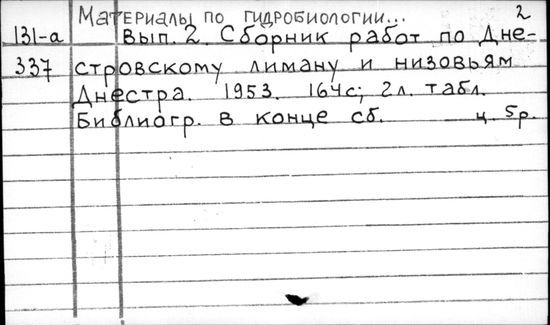 Материалы по гидробиологии... 2
131-а Вып. 2. Сборник работ по Дне-
337 стровскому лиману и низовьям
Днестра. 1953. 164с; 2л. табл.
Библиогр. в конце сб. ц. 5р.